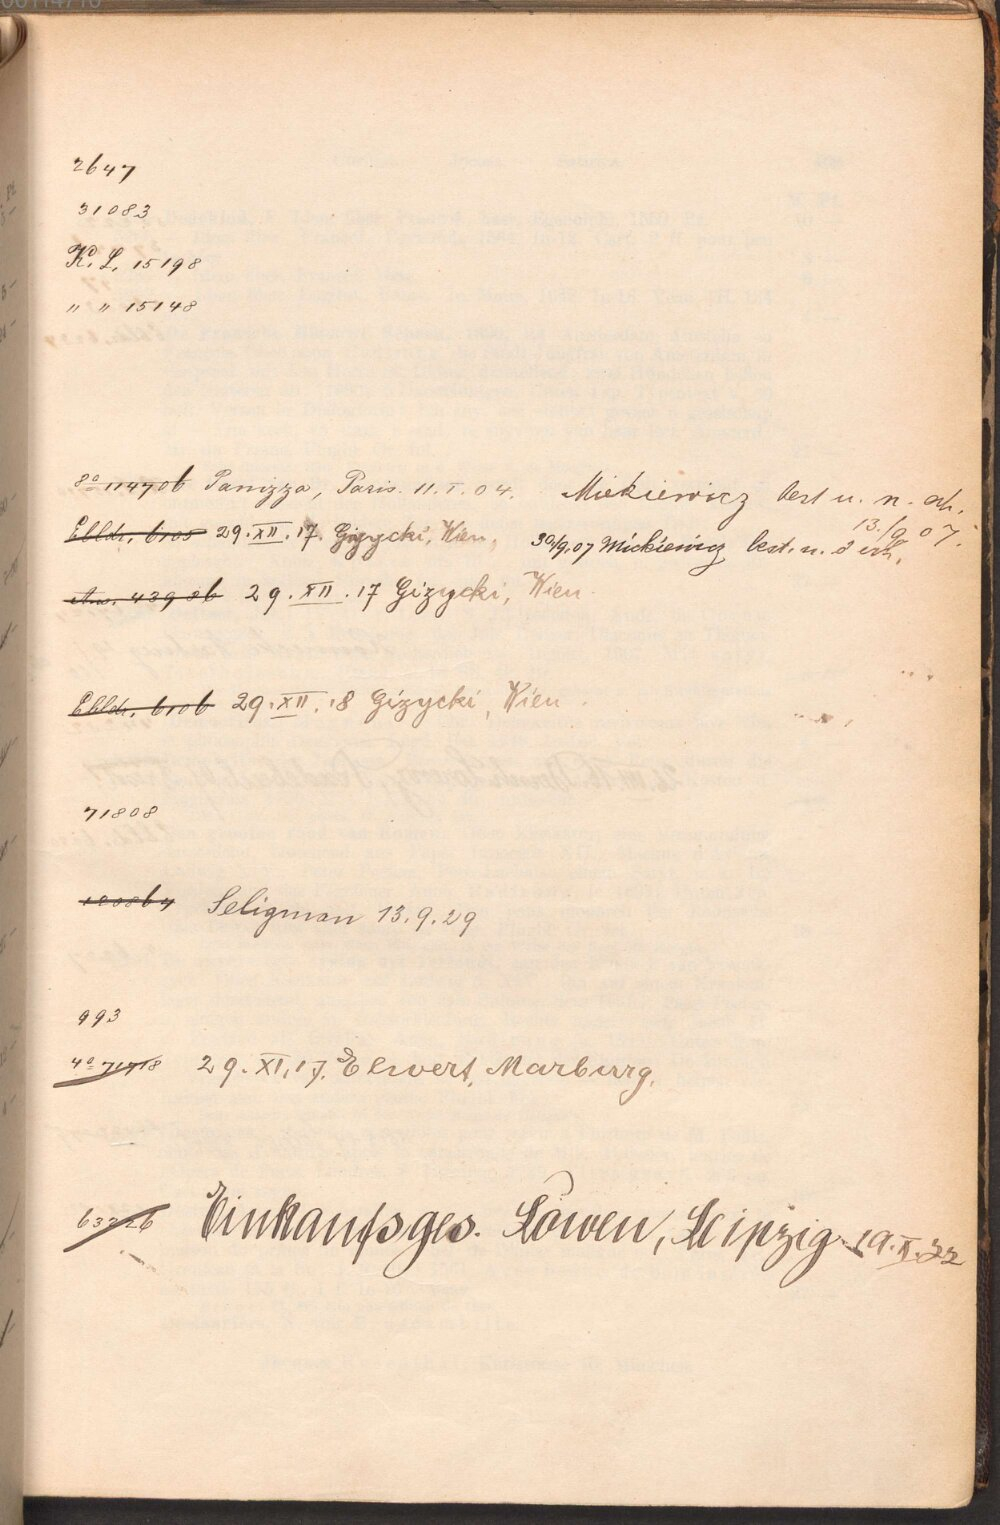 2647
31083
K. L. 15198
" " 15148
8° 11470b Panizza, Paris. 11.I.04. Miekiewicz best u. n. erh.
13./9 07.
Ebldr. 6105 29.XII.17. Gizycki, Wien, 30/9.07 Mickiewicz best. u. n. erh.
439 29.XII.17 Gizycki, Wien.
Ebldr. 610b 29.XII.18 Gizycki, Wien.
71808
Seligman 13.9.29
993
4° 71718 29.XI.17. Elwert, Marburg.
63226 Einkaufsges. Löwen, Leipzig 19.X.22